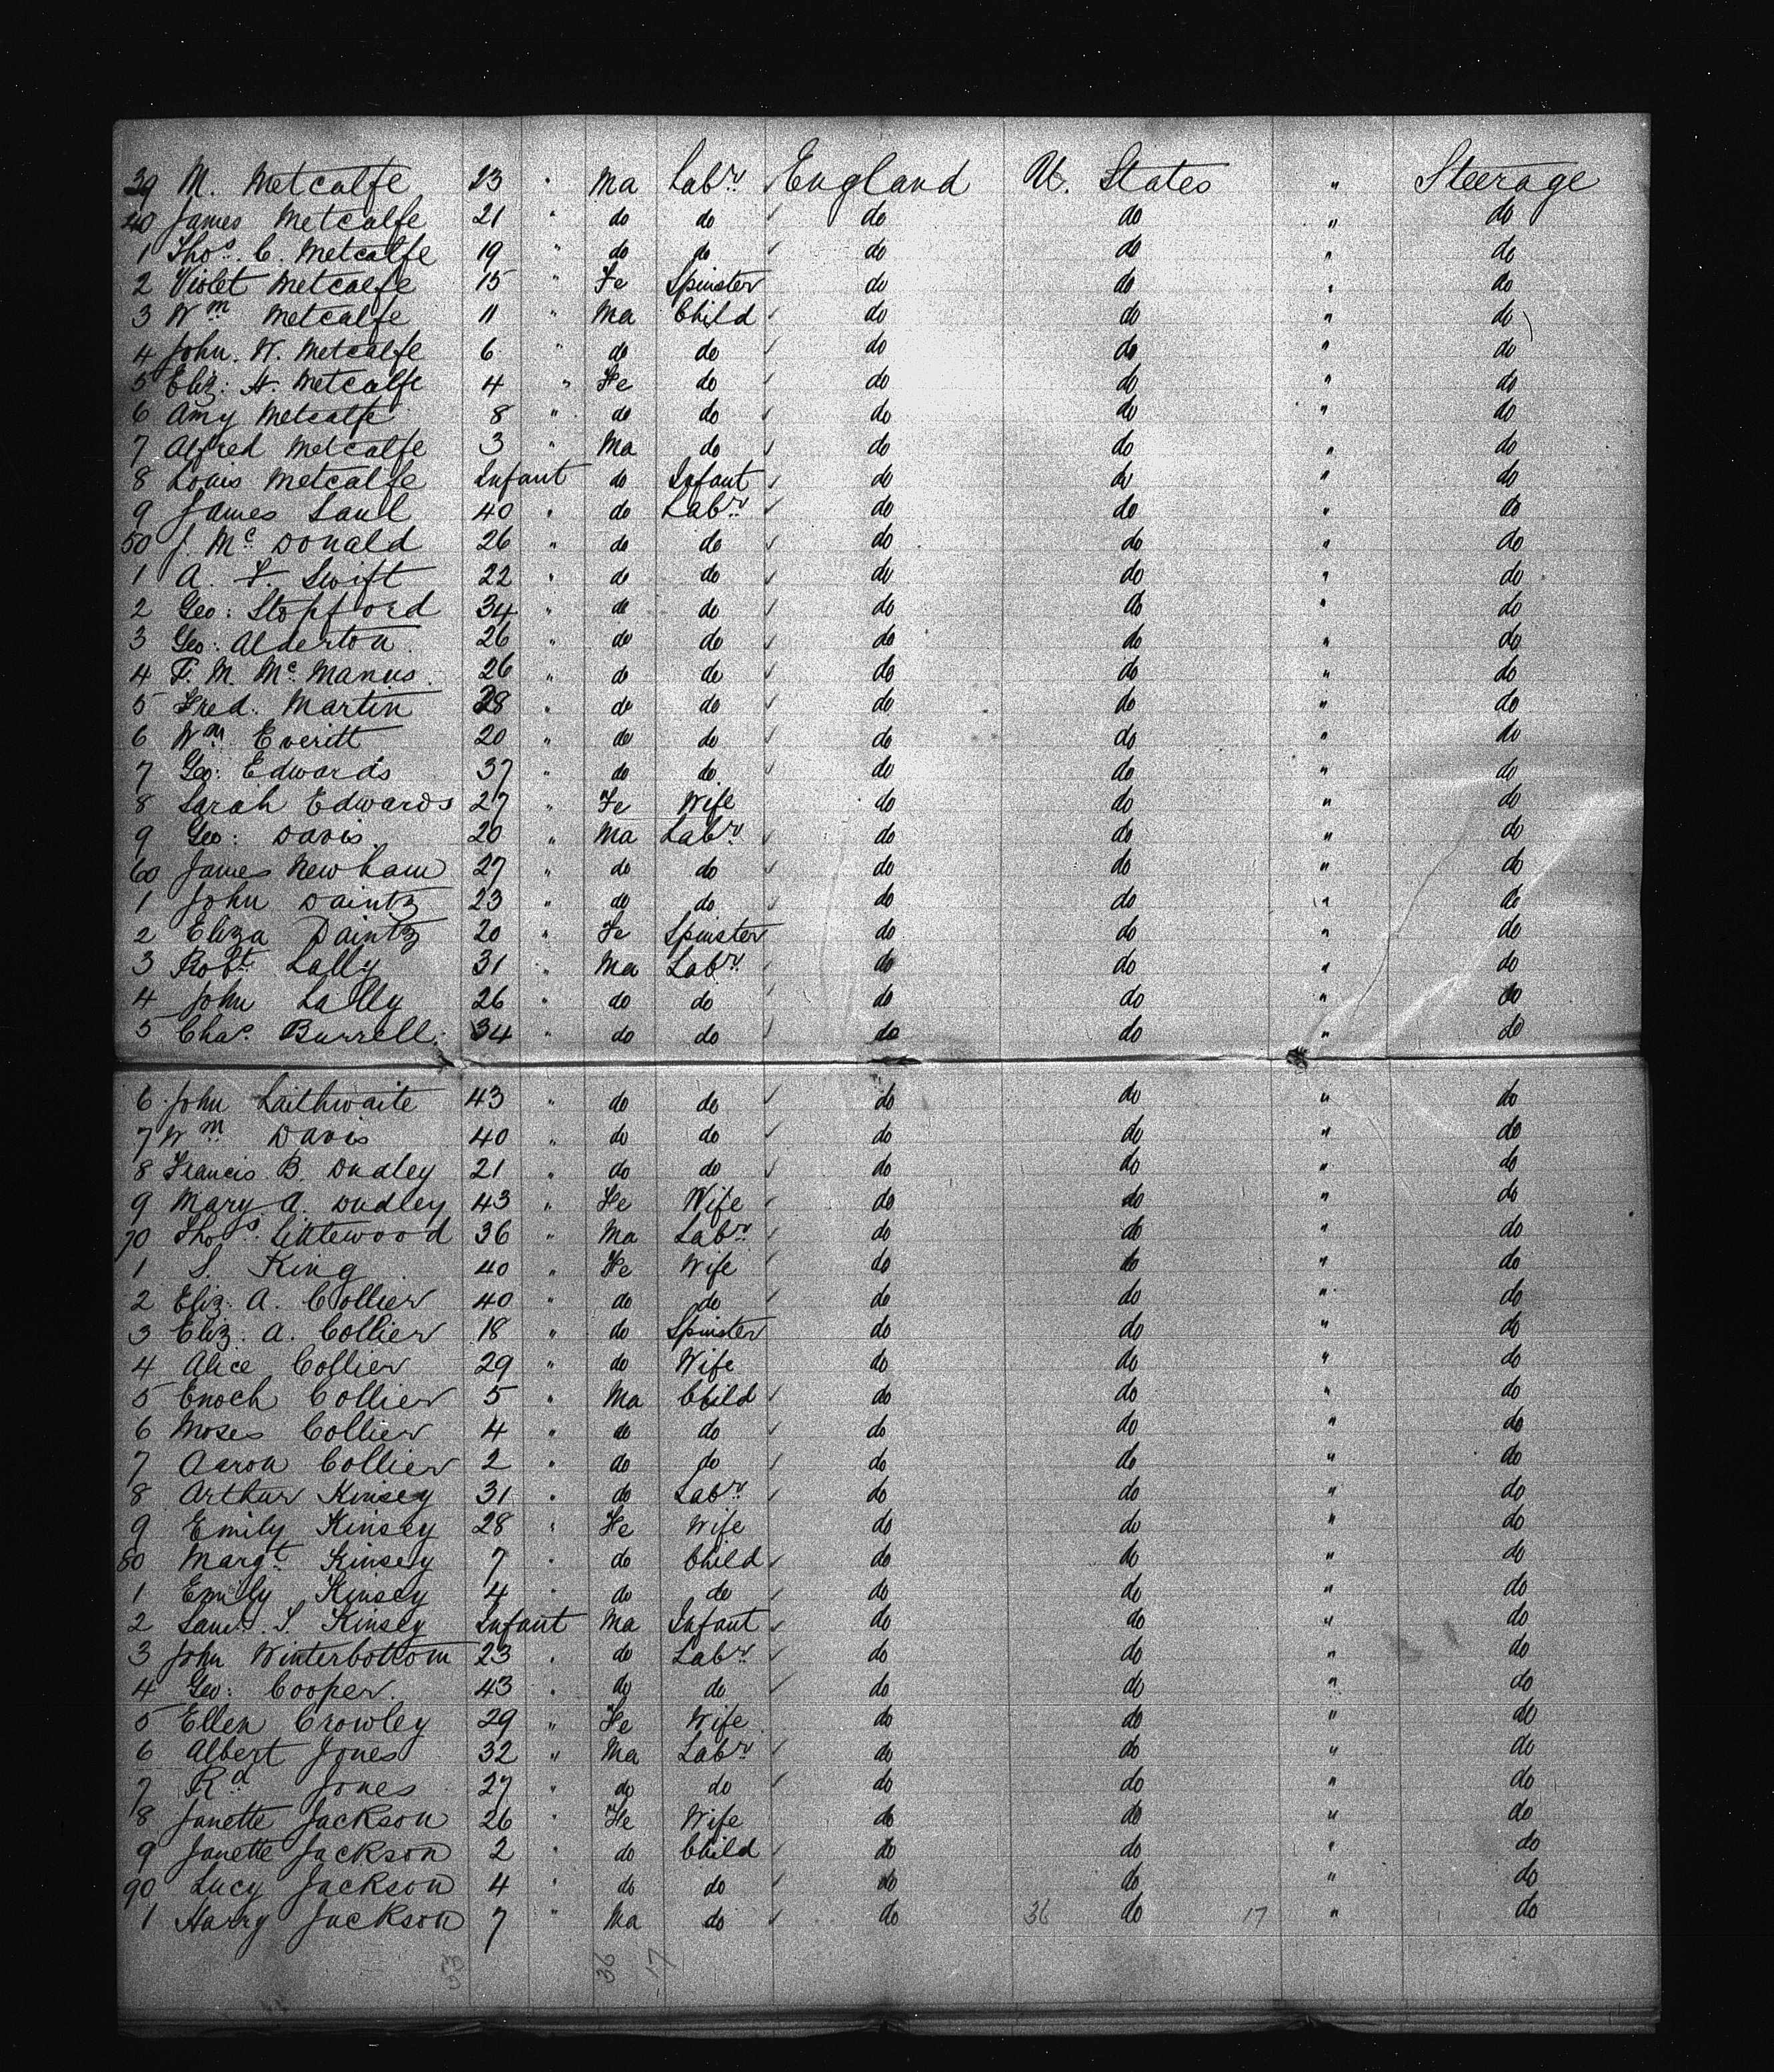 39 M. Metcalfe 23 " Ma Labr. England U. States " Steerage
40 James Metcalfe 21 " do do do do " do
1 Thos. C. Metcalfe 19 " do do do do " do
2 Violet Metcalfe 15 " Fe Spinster do do " do
3 Wm Metcalfe 11 " Ma Child do do " do
4 John. W. Metcalfe 6 " do do do do " do
5 Eliz: H. Metcalfe 4 " Fe do do do " do
6 Amy Metcalfe 8 " do do do do " do
7 Alfred Metcalfe 3 " Ma do do do " do
8 Louis Metcalfe Infant do Infant do do " do
9 James Saul 40 " do Labr. do do " do
50 J. Mc Donald 26 " do do do do " do
1 A. F. Swift 22 " do do do do " do
2 Geo: Stopford 34 " do do do do " do
3 Geo: Alderton 26 " do do do do " do
4 F. M. Mc Manus. 26 " do do do do " do
5 Fred. Martin 28 " do do do do " do
6 Wm Everitt 20 " do do do do " do
7 Geo: Edwards 37 " do do do do " do
8 Sarah Edwards 27 " Fe Wife do do " do
9 Geo: Davis. 20 " Ma Labr. do do " do
60 James Newham 27 " do do do do " do
1 John Daintz 23 " do do do do " do
2 Eliza Daintz 20 " Fe Spinster do do " do
3 Robt Lally 31 " Ma Labr. do do " do
4 John Lally 26 " do do do do " do
5 Chas. Burrell. 34 " do do do do " do
6 John Laithwaite 43 " do do do do " do
7 Wm Davis 40 " do do do do " do
8 Francis. B. Dudley 21 " do do do do " do
9 Mary A. Dudley 43 " Fe Wife do do " do
70 Thos. Littlewood 36 " Ma Labr. do do " do
1 S. King 40 " Fe Wife do do " do
2 Eliz: A. Collier 40 " do do do do " do
3 Eliz: A. Collier 18 " do Spinster do do " do
4 Alice Collier 29 " do Wife do do " do
5 Enoch Collier 5 " Ma Child do do " do
6 Moses Collier 4 " do do do do " do
7 Aaron Collier 2 " do do do do " do
8 Arthur Kinsey 31 " do Labr. do do " do
9 Emily Kinsey 28 " Fe Wife do do " do
80 Margt. Kinsey 7 " do Child do do " do
1 Emily Kinsey 4 " do do do do " do
2 Saml. S. Kinsey Infant Ma Infant do do " do
3 John Winterbottom 23 " do Labr. do do " do
4 Geo: Cooper. 43 " do do do do " do
5 Ellen Crowley 29 " Fe Wife do do " do
6 Albert Jones 32 " Ma Labr. do do " do
7 Rd. Jones 27 " do do do do " do
8 Janette Jackson 26 " Fe Wife do do " do
9 Janette Jackson 2 " do Child do do " do
90 Lucy Jackson 4 " do do do do " do
1 Harry Jackson 7 " Ma do do 36 do 17 " do
53 36 17